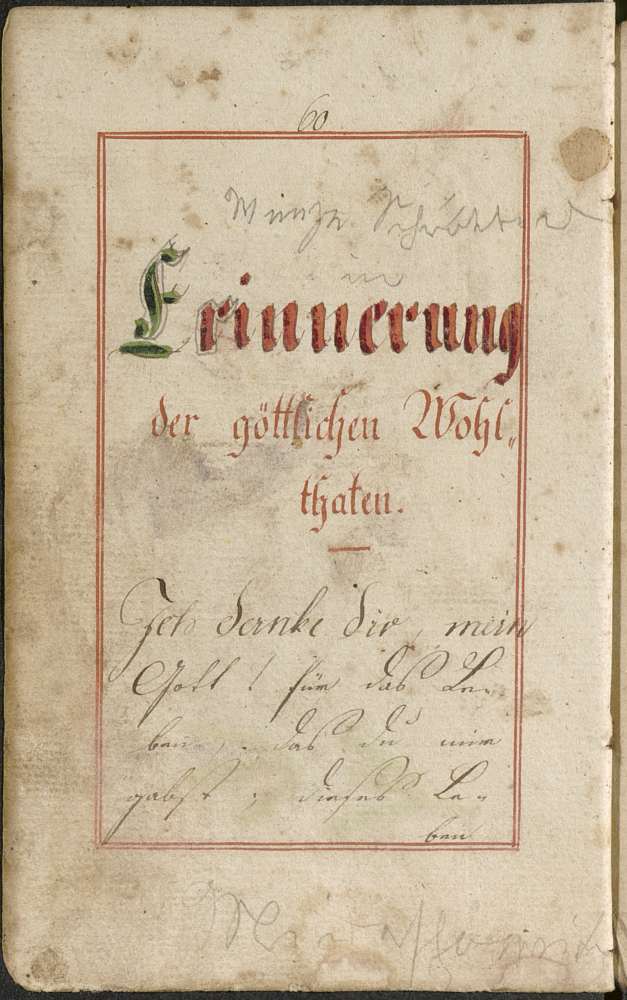 60
in
Erinnerung
der göttlichen Wohl„
thaten.
Ich danke dir, mein
Gott! für das Le„
ben, das du mir
gabst; dieses Le„
ben